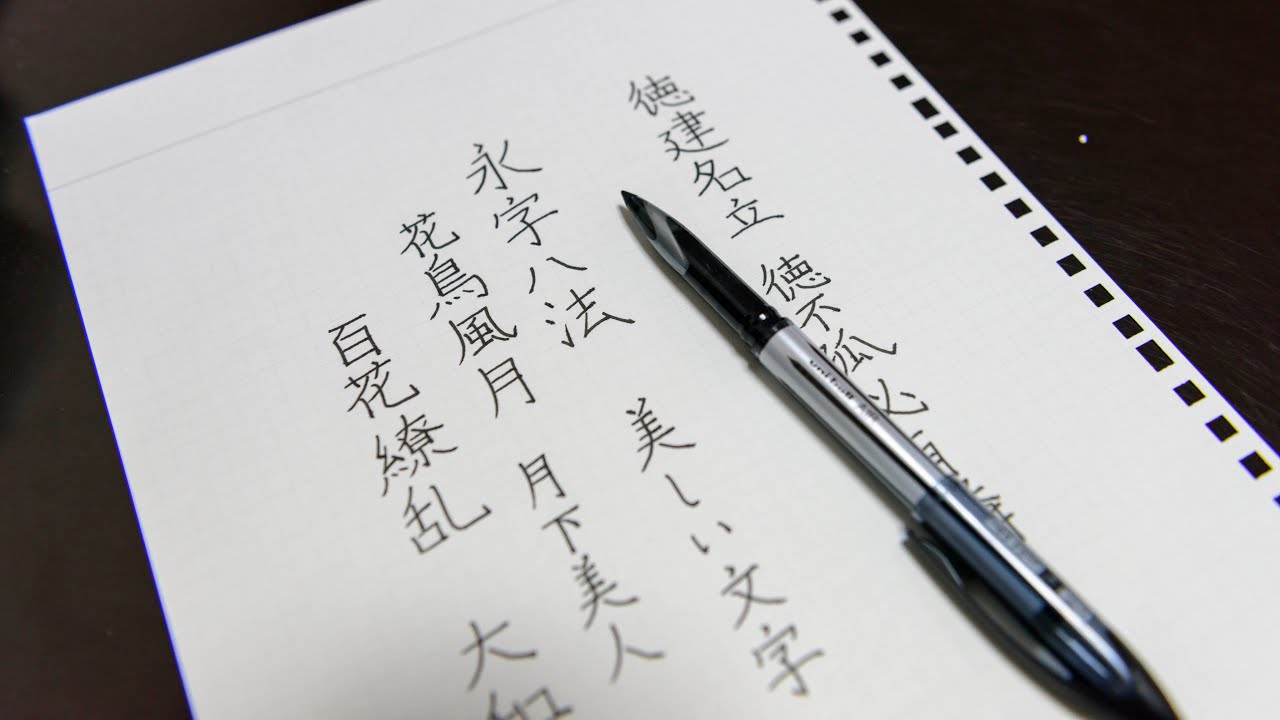 徳建名立 徳不孤必有隣
永字八法 美しい文字
花鳥風月 月下美人
百花繚乱 大和